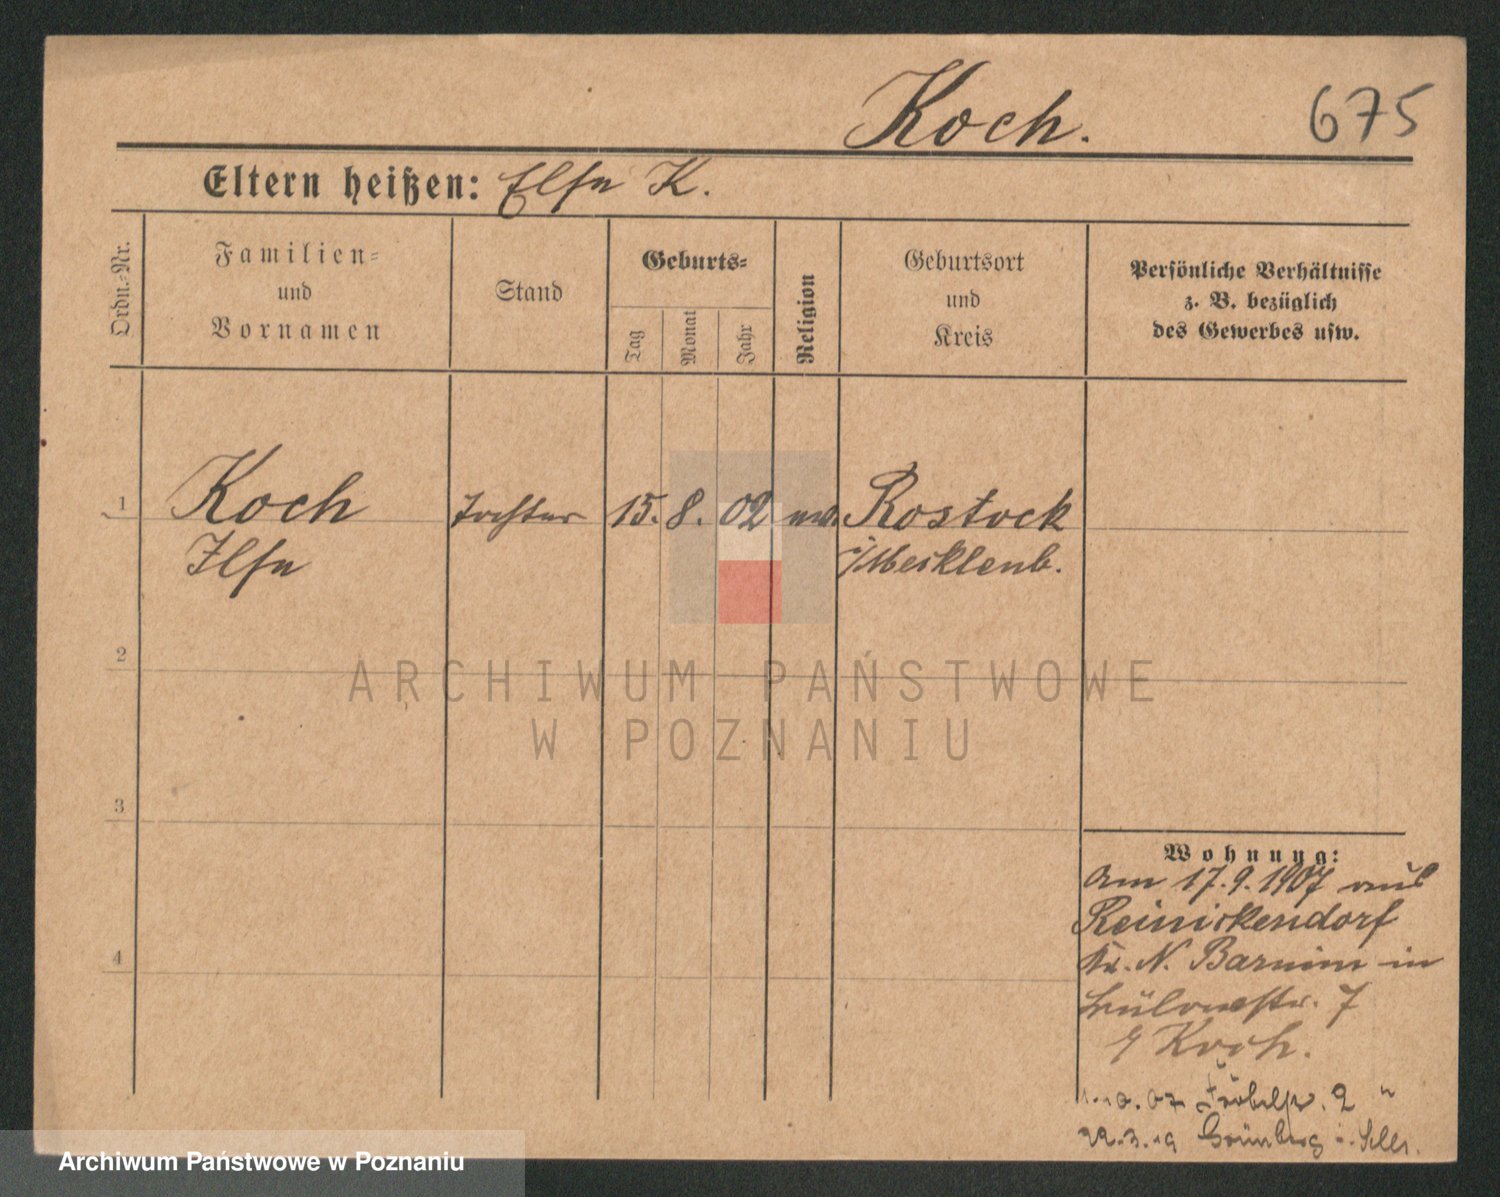 Koch.
675
Eltern heißen: Else K.
Ordn.-Nr.
Familien-
und
Vornamen
Stand
Geburts-
Tag
Monat
Jahr
Religion
Geburtsort
und
Kreis
Persönliche Verhältnisse
z. B. bezüglich
des Gewerbes usw.
1
Koch
Ilse
Tochter
15. 8. 02
Rostock
i/Mecklenb.
2
ARCHIWUM PAŃSTWOWE
W POZNANIU
3
4
Wohnung:
Am 17.9.1907 aus
Reinickendorf
Kr. N. Barnim in
Bülowstr. 7
Koch.
1.10.07 Fröbelstr. 2 "
22.3.19 Grünberg i. Schl.
Archiwum Państwowe w Poznaniu